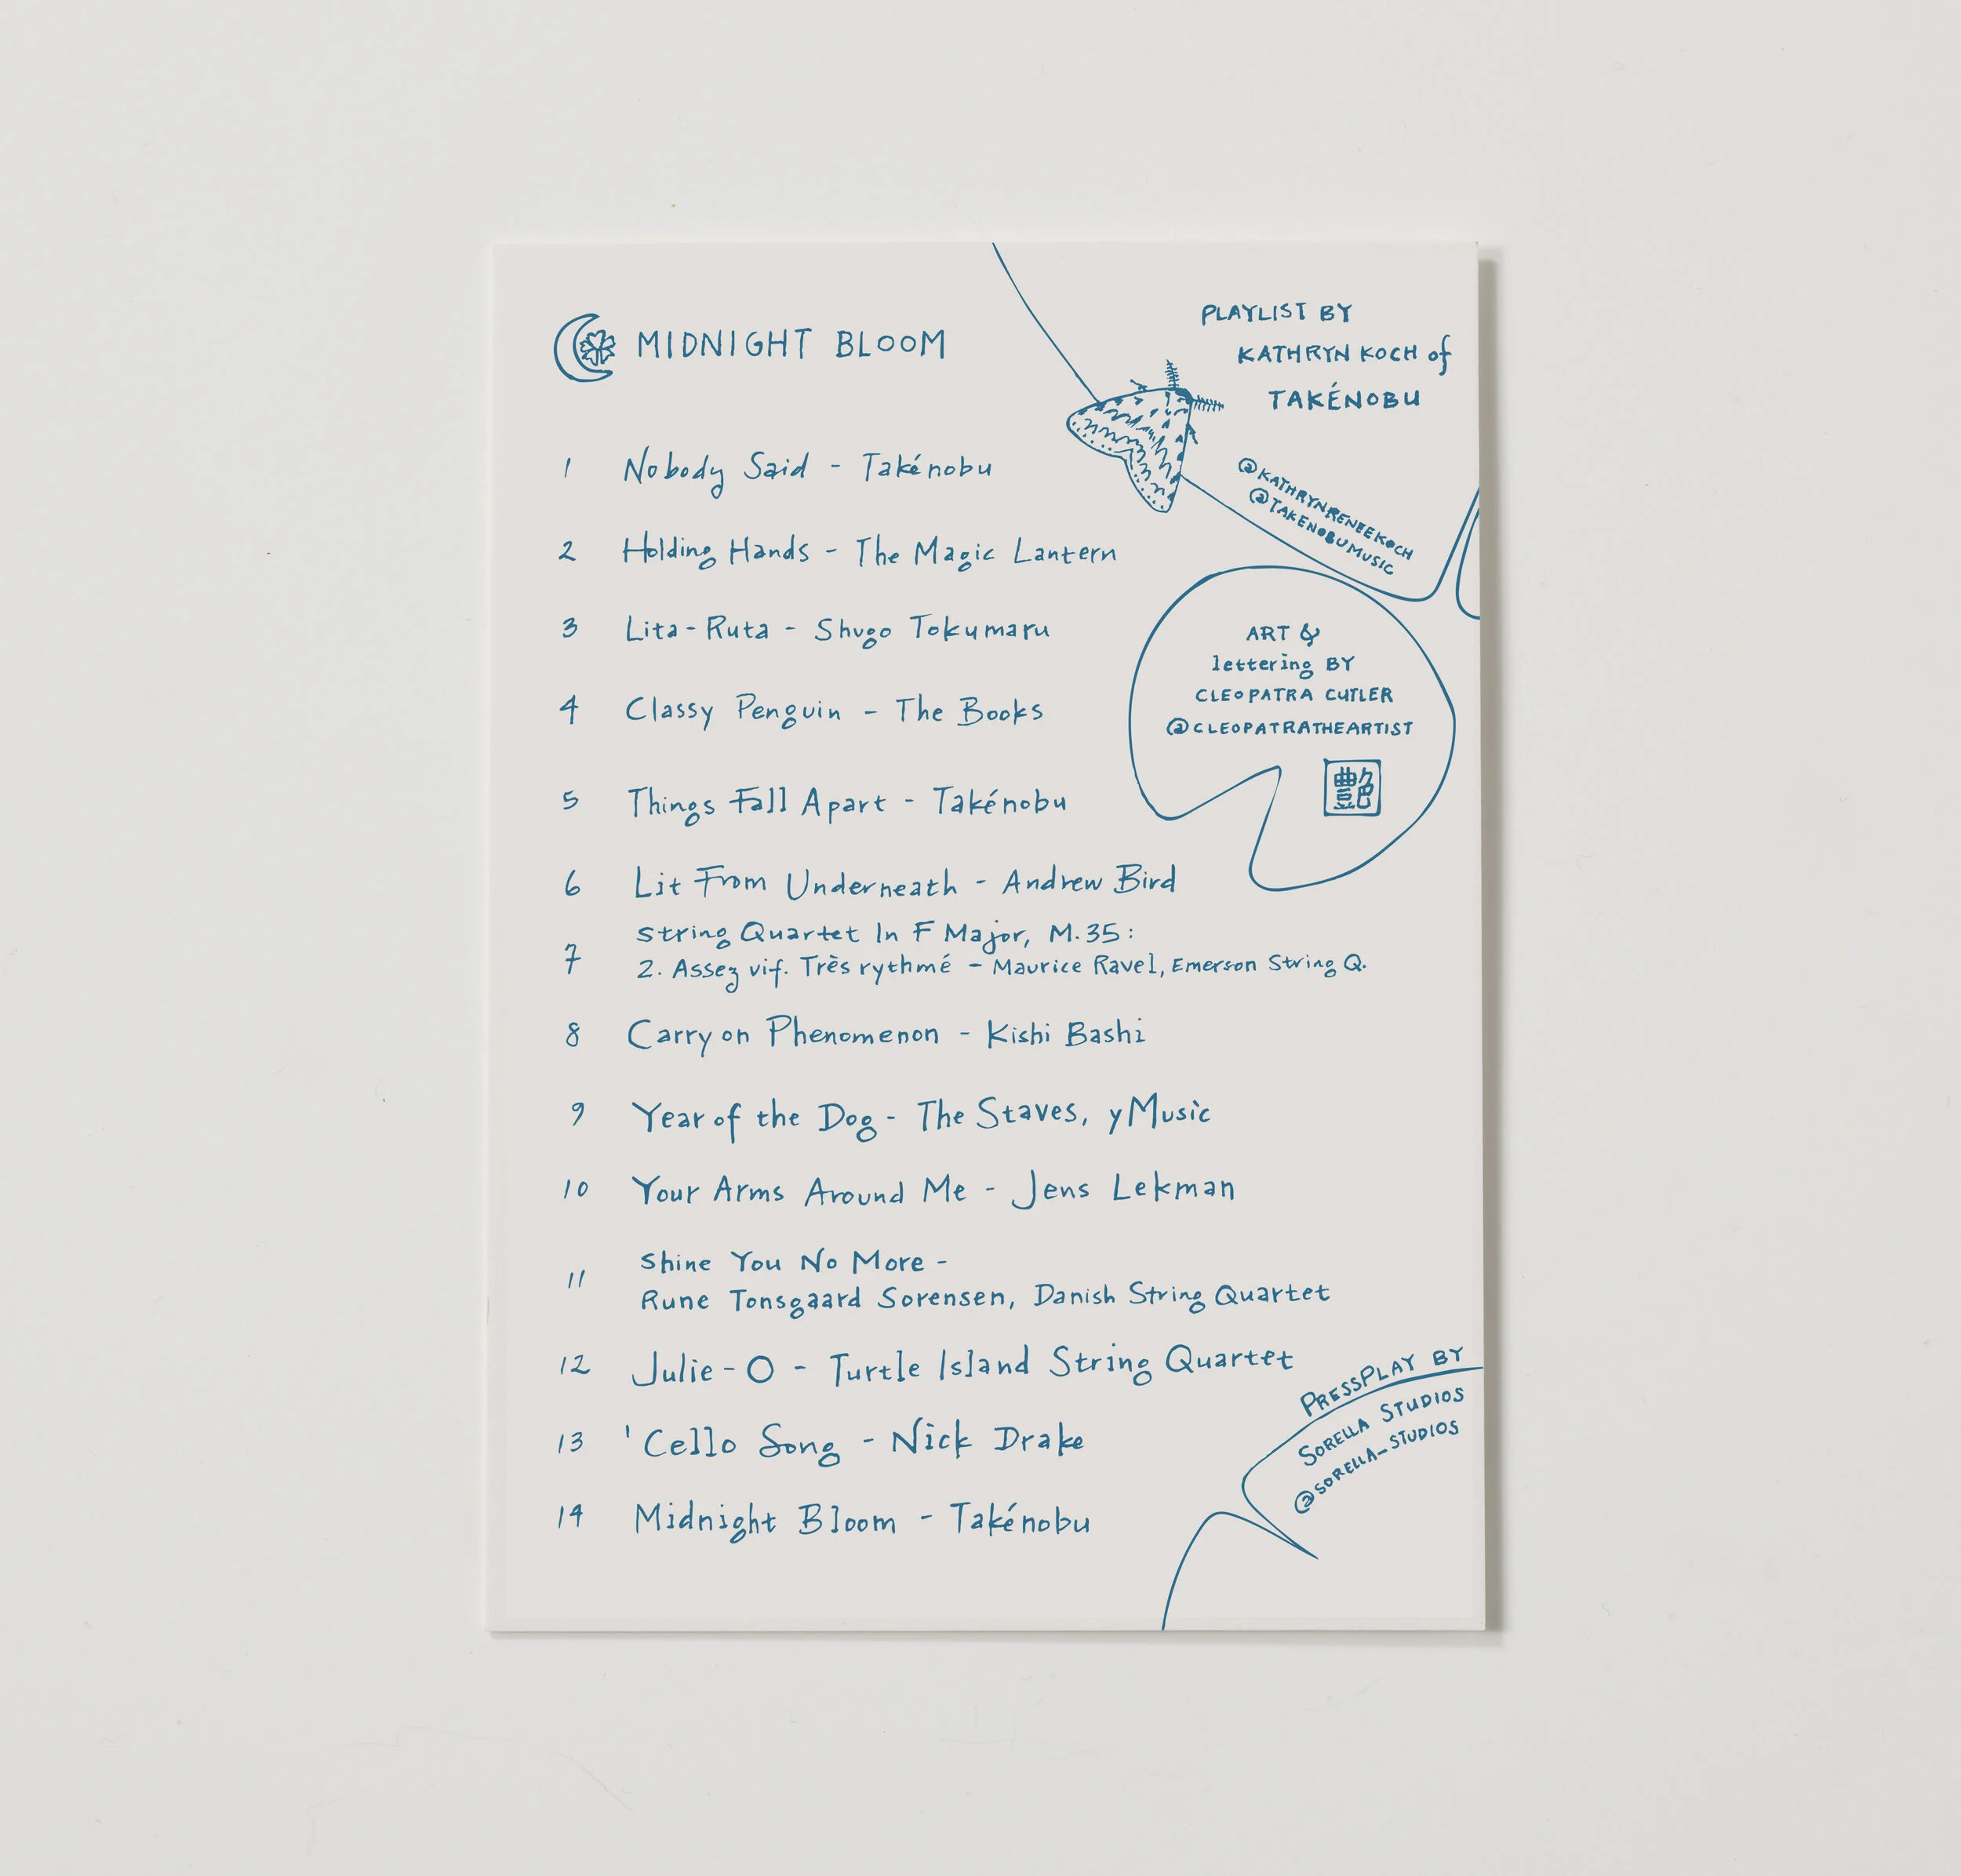 MIDNIGHT BLOOM
PLAYLIST BY
KATHRYN KOCH of
TAKÉNOBU
@KATHRYNRENEEKOCH
@TAKENOBUMUSIC
1 Nobody Said - Takénobu
2 Holding Hands - The Magic Lantern
3 Lita-Ruta - Shugo Tokumaru
4 Classy Penguin - The Books
5 Things Fall Apart - Takénobu
6 Lit From Underneath - Andrew Bird
7 String Quartet In F Major, M.35:
2. Assez vif. Très rythmé - Maurice Ravel, Emerson String Q.
8 Carry on Phenomenon - Kishi Bashi
9 Year of the Dog - The Staves, yMusic
10 Your Arms Around Me - Jens Lekman
11 Shine You No More -
Rune Tonsgaard Sorensen, Danish String Quartet
12 Julie-O - Turtle Island String Quartet
13 'Cello Song - Nick Drake
14 Midnight Bloom - Takénobu
ART &
lettering BY
CLEOPATRA CUTLER
@CLEOPATRATHEARTIST
艷
PRESSPLAY BY
SORELLA STUDIOS
@SORELLA_STUDIOS